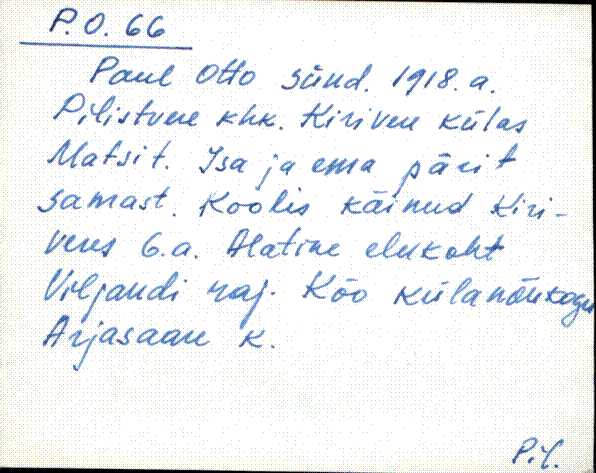 P.O. 66
Paul Otto sünd. 1918. a.
Pilistvere khk. Kirivere külas
Matsit. Isa ja ema pärit
samast. Koolis käinud Kiri-
veres 6.a. Alatine elukoht
Viljandi raj. Kõo külanõukogu
Arjasaare k.
Pil.